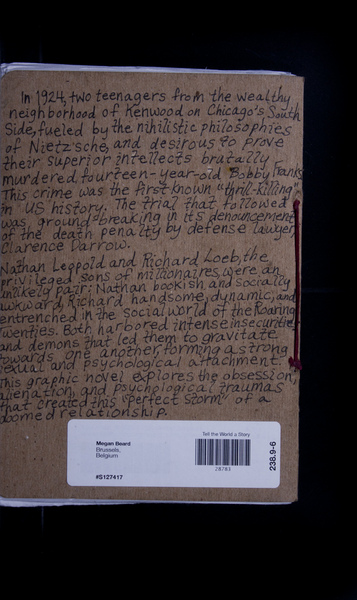 In 1924, two teenagers from the wealthy
neighborhood of Kenwood on Chicago's South
Side, fueled by the nihilistic philosophies
of Nietzsche, and desirous to prove
their superior intellects brutally
murdered fourteen-year-old Bobby Franks.
This crime was the first known "thrill-killing"
in US history. The trial that followed
was ground-breaking in its denouncement
of the death penalty by defense lawyer,
Clarence Darrow.
Nathan Leopold and Richard Loeb, the
privileged sons of millionaires, were an
unlikely pair: Nathan bookish and socially
awkward, Richard handsome, dynamic, and
entrenched in the social world of the Roaring
Twenties. Both harbored intense insecurities
and demons that led them to gravitate
towards one another, forming a strong
sexual and psychological attachment.
This graphic novel explores the obsession,
alienation, and psychological traumas
that created this "perfect storm" of a
doomed relationship.
Megan Beard
Brussels,
Belgium
#S127417
Tell the World a Story
28783
238.9-6